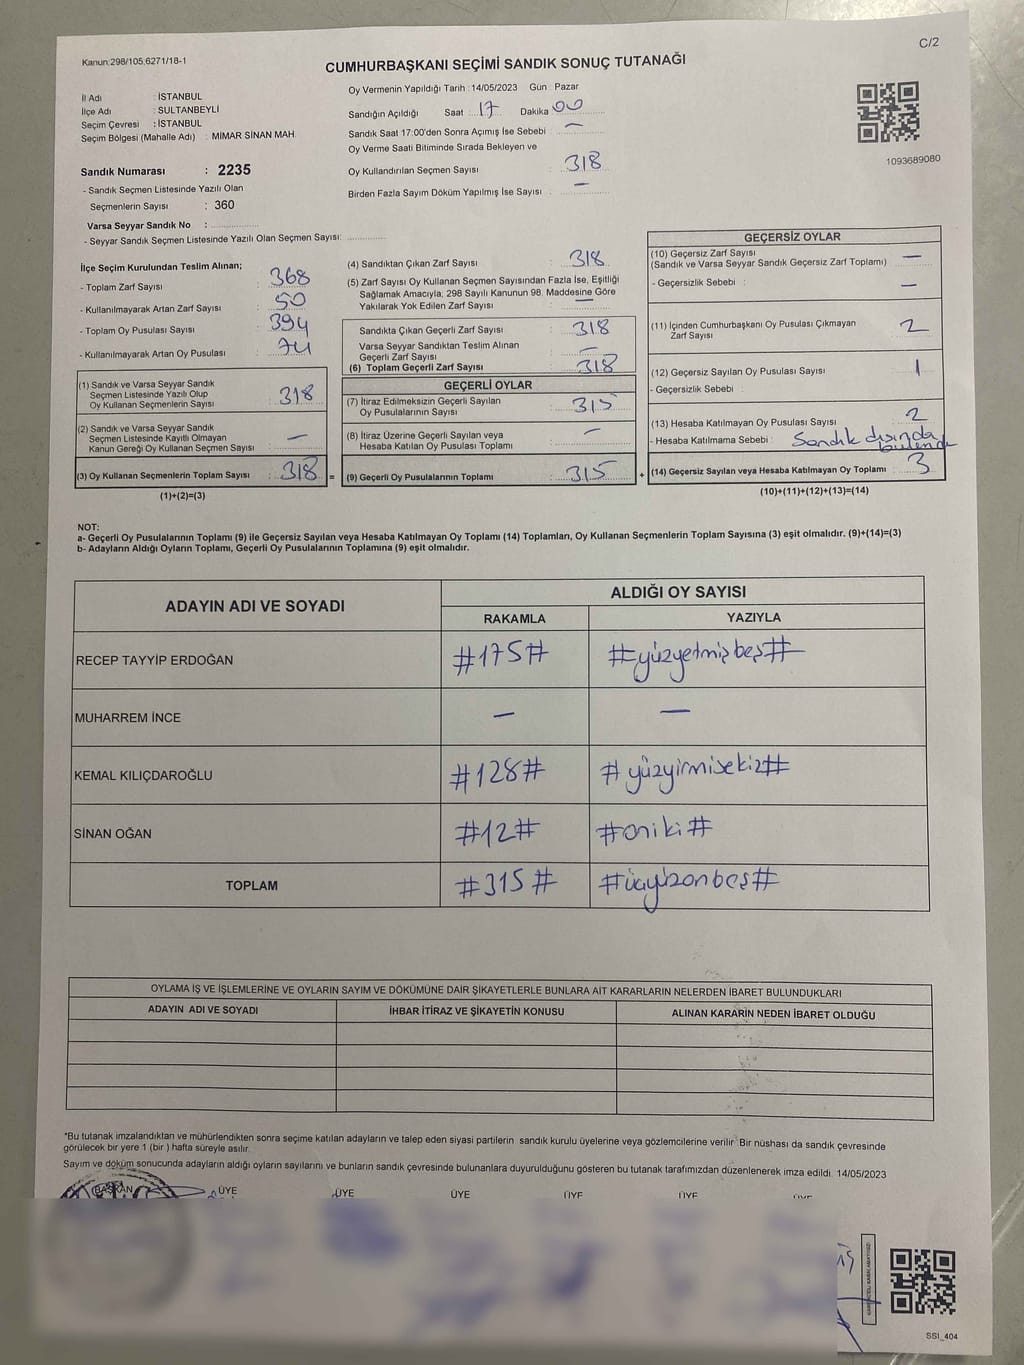 Kanun:298/105,6271/18-1
C/2
CUMHURBAŞKANI SEÇİMİ SANDIK SONUÇ TUTANAĞI
İl Adı : İSTANBUL
İlçe Adı : SULTANBEYLİ
Seçim Çevresi : İSTANBUL
Seçim Bölgesi (Mahalle Adı) : MİMAR SİNAN MAH.
Sandık Numarası : 2235
- Sandık Seçmen Listesinde Yazılı Olan
Seçmenlerin Sayısı : 360
Varsa Seyyar Sandık No :
- Seyyar Sandık Seçmen Listesinde Yazılı Olan Seçmen Sayısı:
Oy Vermenin Yapıldığı Tarih : 14/05/2023 Gün : Pazar
Sandığın Açıldığı Saat : 17 Dakika : 00
Sandık Saat 17:00'den Sonra Açımış İse Sebebi : —
Oy Verme Saati Bitiminde Sırada Bekleyen ve
Oy Kullandırılan Seçmen Sayısı : 318
Birden Fazla Sayım Döküm Yapılmış İse Sayısı : —
1093689080
İlçe Seçim Kurulundan Teslim Alınan;
- Toplam Zarf Sayısı : 368
- Kullanılmayarak Artan Zarf Sayısı : 50
- Toplam Oy Pusulası Sayısı : 394
- Kullanılmayarak Artan Oy Pusulası : 74
(1) Sandık ve Varsa Seyyar Sandık
Seçmen Listesinde Yazılı Olup
Oy Kullanan Seçmenlerin Sayısı : 318
(2) Sandık ve Varsa Seyyar Sandık
Seçmen Listesinde Kayıtlı Olmayan
Kanun Gereği Oy Kullanan Seçmen Sayısı : —
(3) Oy Kullanan Seçmenlerin Toplam Sayısı : 318 =
(1)+(2)=(3)
(4) Sandıktan Çıkan Zarf Sayısı : 318
(5) Zarf Sayısı Oy Kullanan Seçmen Sayısından Fazla İse, Eşitliği
Sağlamak Amacıyla, 298 Sayılı Kanunun 98. Maddesine Göre
Yakılarak Yok Edilen Zarf Sayısı : —
Sandıkta Çıkan Geçerli Zarf Sayısı : 318
Varsa Seyyar Sandıktan Teslim Alınan
Geçerli Zarf Sayısı : —
(6) Toplam Geçerli Zarf Sayısı : 318
GEÇERLİ OYLAR
(7) İtiraz Edilmeksizin Geçerli Sayılan
Oy Pusulalarının Sayısı : 315
(8) İtiraz Üzerine Geçerli Sayılan veya
Hesaba Katılan Oy Pusulası Toplamı : —
(9) Geçerli Oy Pusulalarının Toplamı : 315 +
GEÇERSİZ OYLAR
(10) Geçersiz Zarf Sayısı : —
(Sandık ve Varsa Seyyar Sandık Geçersiz Zarf Toplamı)
- Geçersizlik Sebebi : —
(11) İçinden Cumhurbaşkanı Oy Pusulası Çıkmayan
Zarf Sayısı : 2
(12) Geçersiz Sayılan Oy Pusulası Sayısı : 1
- Geçersizlik Sebebi :
(13) Hesaba Katılmayan Oy Pusulası Sayısı : 2
- Hesaba Katılmama Sebebi : Sandık dışında
(14) Geçersiz Sayılan veya Hesaba Katılmayan Oy Toplamı : 3
(10)+(11)+(12)+(13)=(14)
NOT:
a- Geçerli Oy Pusulalarının Toplamı (9) ile Geçersiz Sayılan veya Hesaba Katılmayan Oy Toplamı (14) Toplamları, Oy Kullanan Seçmenlerin Toplam Sayısına (3) eşit olmalıdır. (9)+(14)=(3)
b- Adayların Aldığı Oyların Toplamı, Geçerli Oy Pusulalarının Toplamına (9) eşit olmalıdır.
ADAYIN ADI VE SOYADI
ALDIĞI OY SAYISI
RAKAMLA YAZIYLA
RECEP TAYYİP ERDOĞAN #175# #yüzyetmişbeş#
MUHARREM İNCE — —
KEMAL KILIÇDAROĞLU #128# #yüzyirmisekiz#
SİNAN OĞAN #12# #oniki#
TOPLAM #315# #üçyüzonbeş#
OYLAMA İŞ VE İŞLEMLERİNE VE OYLARIN SAYIM VE DÖKÜMÜNE DAİR ŞİKAYETLERLE BUNLARA AİT KARARLARIN NELERDEN İBARET BULUNDUKLARI
ADAYIN ADI VE SOYADI İHBAR İTİRAZ VE ŞİKAYETİN KONUSU ALINAN KARARIN NEDEN İBARET OLDUĞU
"Bu tutanak imzalandıktan ve mühürlendikten sonra seçime katılan adayların ve talep eden siyasi partilerin sandık kurulu üyelerine veya gözlemcilerine verilir. Bir nüshası da sandık çevresinde
görülecek bir yere 1 (bir ) hafta süreyle asılır.
Sayım ve döküm sonucunda adayların aldığı oyların sayılarını ve bunların sandık çevresinde bulunanlara duyurulduğunu gösteren bu tutanak tarafımızdan düzenlenerek imza edildi. 14/05/2023
BAŞKAN ÜYE ÜYE ÜYE ÜYE ÜYE ÜYE
SSI_404